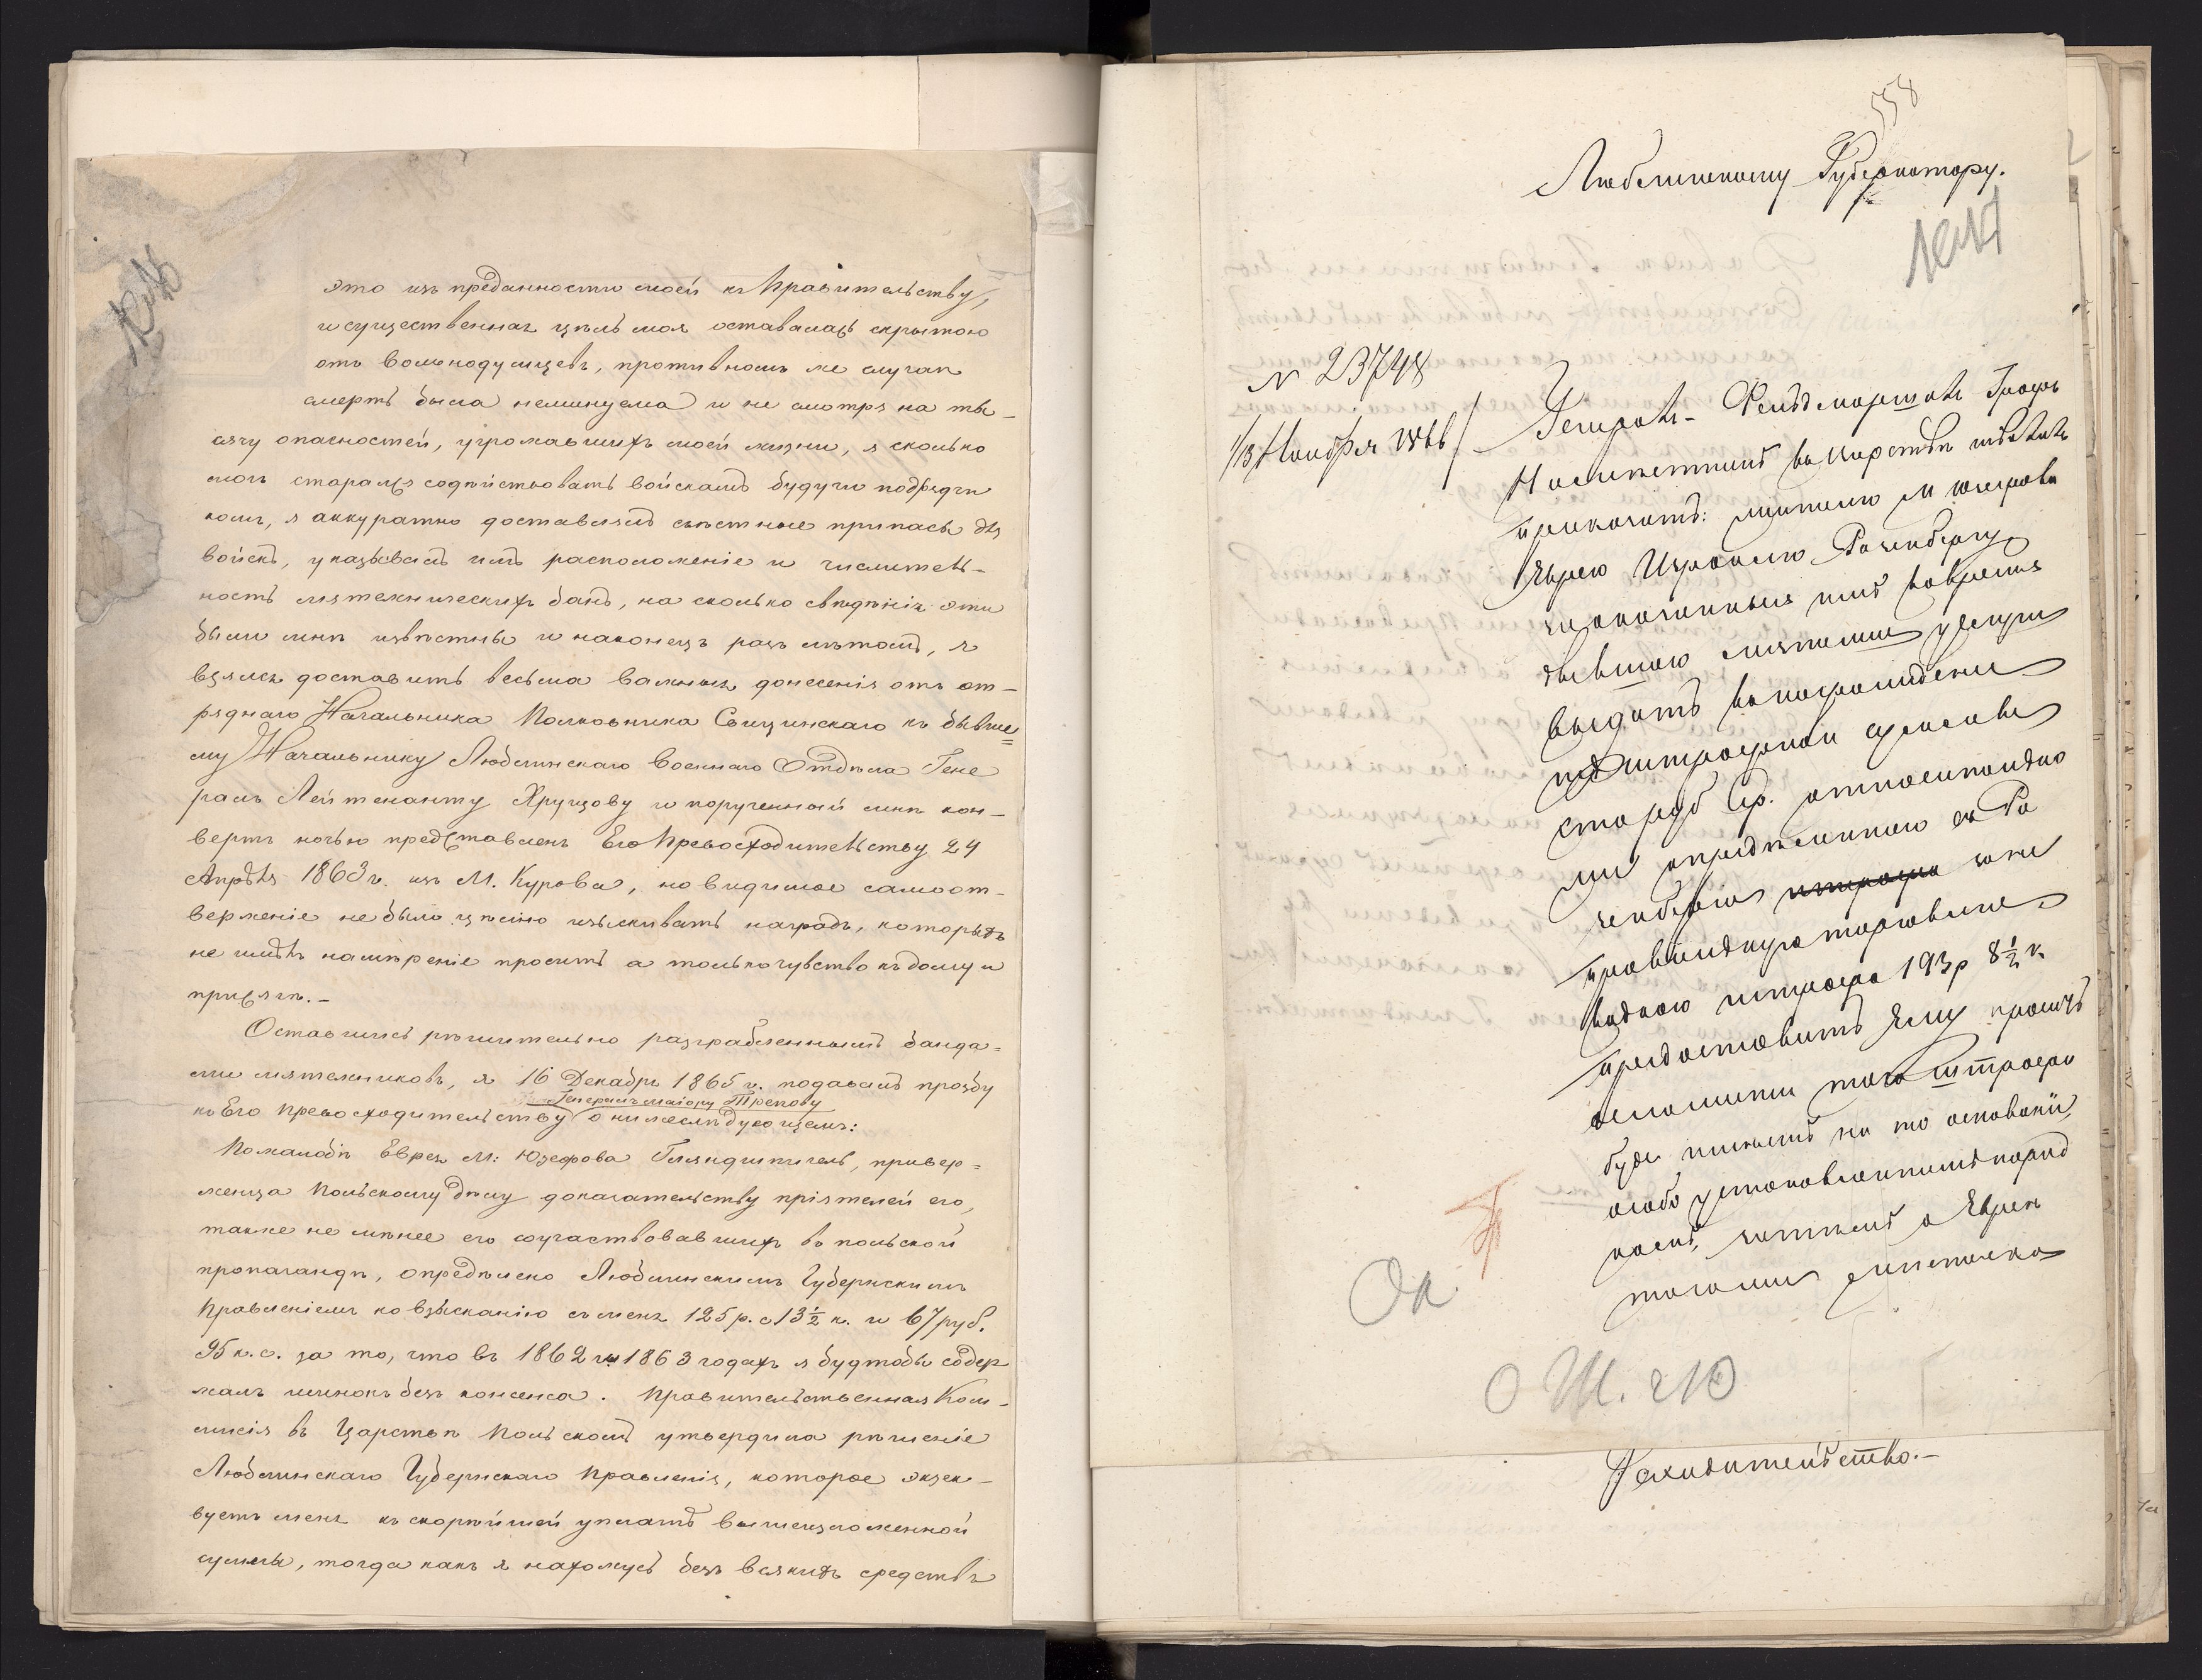 это изъ преданности моей къ Правительству,
и существенная цѣль моя оставалась скрытою
отъ вольнодумцевъ, противномъ же случаѣ
смерть была неминуема и не смотря на ты-
сячу опасностей, угрожавшихъ моей жизни, я сколько
могъ старался содѣйствовать войскамъ будучи подрядчи
комъ, я аккуратно доставлялъ съѣстные припасы для
войскъ, указывалъ имъ расположеніе и числитель-
ность мятежническихъ бандъ, на сколько свѣдѣнія эти
были мнѣ извѣстны и наконецъ разъ лѣтомъ, я
взялся доставить весьма важныя донесенія отъ от-
ряднаго Начальника Полковника Сыщинскаго къ бывше
му Начальнику Люблинскаго Военнаго Отдѣла Гене
ралъ Лейтенанту Хрущову и порученный мнѣ кон-
вертъ ночью представленъ Его Превосходительству 24
Апрѣля 1863 г. изъ М. Курова, но видимое самоот-
верженіе не было цѣлію изыскивать наградъ, которыхъ
не имѣлъ намѣреніе просить а только чувство къ долгу и
присягѣ.-
Оставшись рѣшительно разграбленнымъ банда=
ми мятежниковъ, я 16 Декабря 1865 г. подавалъ прозьбу
Генералъ Маіору Трепову
къ Его Превосходительству о нижеслѣдующемъ:
По жалобѣ Еврея М: Юзефова привер=
женца Польскому дѣлу доказательству пріятелей его,
также не мѣнее его соучаствовавшихъ въ польской
пропагандѣ, опредѣлено Люблинскимъ Губернскимъ
Правленіемъ ко взысканію съ меня 125 р. с 13½ к. и 67 руб.
95 к. с. за то, что въ 1862 и 1863 годахъ я будтобы содер
жалъ шинокъ безъ консенса. Правительственная Ком-
мисія въ Царствѣ Польскомъ утвердила рѣшеніе
Люблинскаго Губернскаго Правленія, которое экзек-
вуетъ меня къ скорѣйшей уплатѣ вышеизложенной
суммы, тогда какъ я нахожусь безъ всякихъ средствъ
558
Люблинскому Губернатору.
№ 23748
1/13 Ноября 1866
Генералъ-Фельдмаршалъ Графъ
Намѣстникъ въ Царствѣ
приказалъ: жителю М Юзефова
Еврею Израилю Розенбергу
за оказанныя имъ вовремя
бывшаго мятежа услуги
выдать въ вознагражденіе
изъ штрафной суммы
сто руб Ср. относительно
же опредѣленнаго съ Ро
зенберга за не
правильную торговлю
виною штрафа 193 р 8½ к
предоставить Ему просить
о сложеніи того штрафа
буде имѣетъ на то основаніи,
особо установленнымъ поряд
комъ, затѣмъ о Евреѣ
О Ш. 210